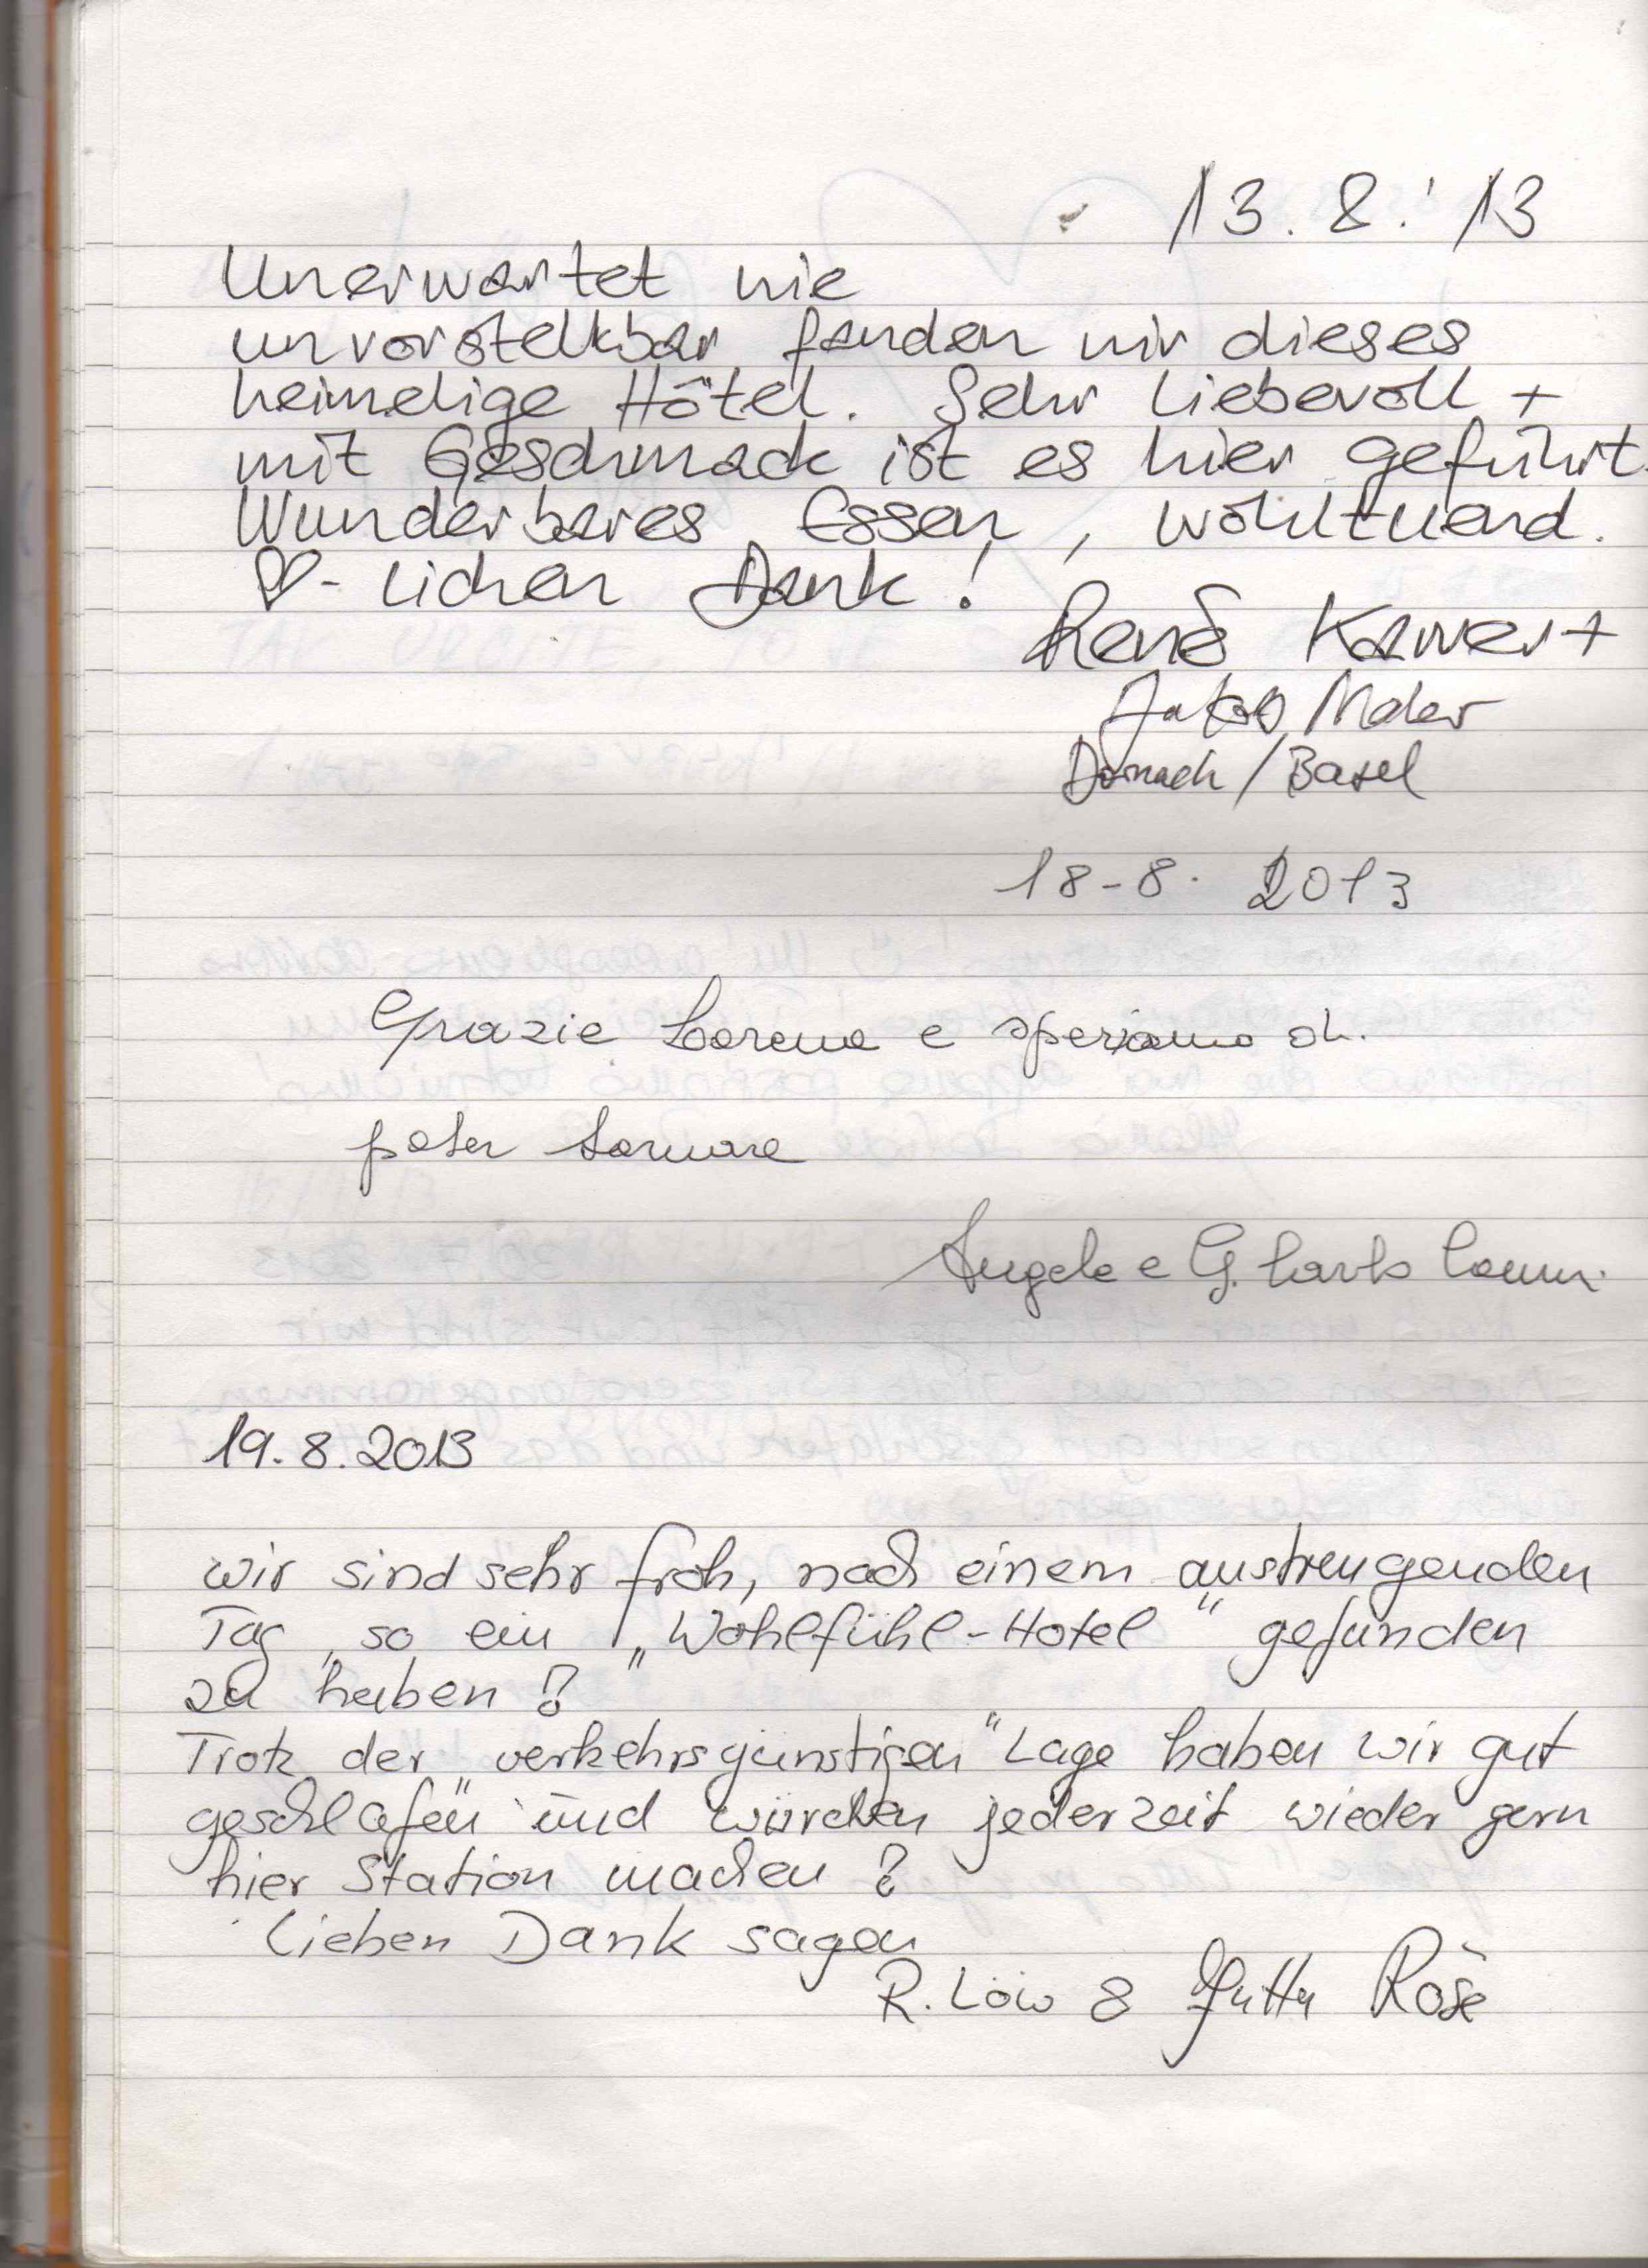 13.8.'13
Unerwartet wie
unvorstellbar fanden wir dieses
heimelige Hôtel. Sehr liebevoll +
mit Geschmack ist es hier geführt.
Wunderbares Essen, wohltuend.
♡-lichen Dank!
René +
Jakob
Dornach / Basel
18-8. 2013
Grazie Lorena e speriamo di
poter tornare
Angela e G. Carlo
19.8.2013
wir sind sehr froh, nach einem anstrengenden
Tag, so ein „Wohlfühl-Hotel" gefunden
zu haben!
Trotz der „verkehrsgünstigen" Lage haben wir gut
geschlafen und würden jederzeit wieder gern
hier Station machen!
Lieben Dank sagen
R. Löw & Jutta Röse